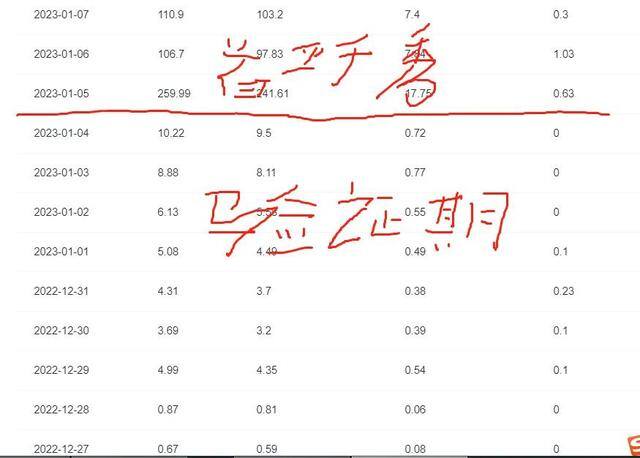 2023-01-07 110.9 103.2 7.4 0.3
2023-01-06 106.7 97.83 7.84 1.03
2023-01-05 259.99 241.61 17.75 0.63
2023-01-04 10.22 9.5 0.72 0
2023-01-03 8.88 8.11 0.77 0
2023-01-02 6.13 5.58 0.55 0
验证期
2023-01-01 5.08 4.49 0.49 0.1
2022-12-31 4.31 3.7 0.38 0.23
2022-12-30 3.69 3.2 0.39 0.1
2022-12-29 4.99 4.35 0.54 0.1
2022-12-28 0.87 0.81 0.06 0
2022-12-27 0.67 0.59 0.08 0